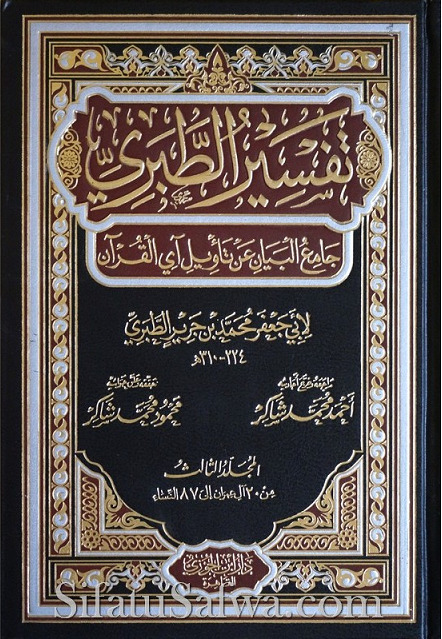 تفسير الطبري
جامع البيان عن تأويل آي القرآن
لأبي جعفر محمد بن جرير الطبري
٢٢٤-٣١٠هـ
راجعه وخرج أحاديثه
أحمد محمد شاكر
حققه وعلق حواشيه
محمود محمد شاكر
المجلد الثالث
من ٢٠ آل عمران إلى ٨٧ النساء
دار ابن الجوزي
القاهرة
SifatuSafwa.com